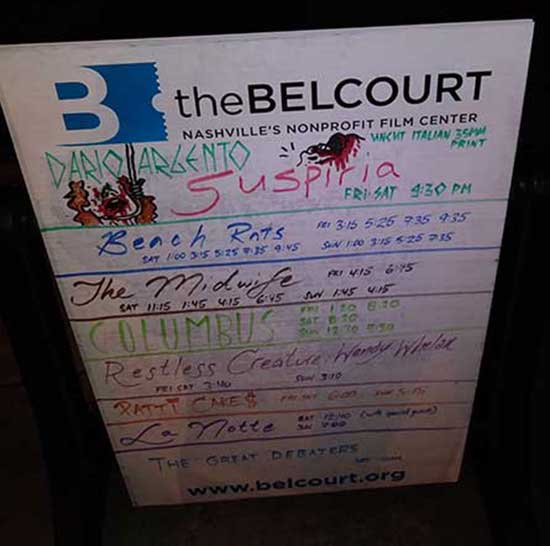 B theBELCOURT
NASHVILLE'S NONPROFIT FILM CENTER
DARIO ARGENTO
UNCUT ITALIAN 35MM PRINT
Suspiria
FRI-SAT 9:30 PM
Beach Rats FRI 3:15 5:25 7:35 9:35
SAT 1:00 3:15 5:25 7:35 9:45 SUN 1:00 3:15 5:25 7:35
The Midwife FRI 4:15 6:45
SAT 11:15 1:45 4:15 6:45 SUN 1:45 4:15
COLUMBUS FRI 1:20 8:20
SAT 8:20
SUN 12:30
Restless Creature: Wendy Whelan
SUN 3:10
PATTI CAKE$
La Notte SAT 12:10
SUN
THE GREAT DEBATERS
www.belcourt.org